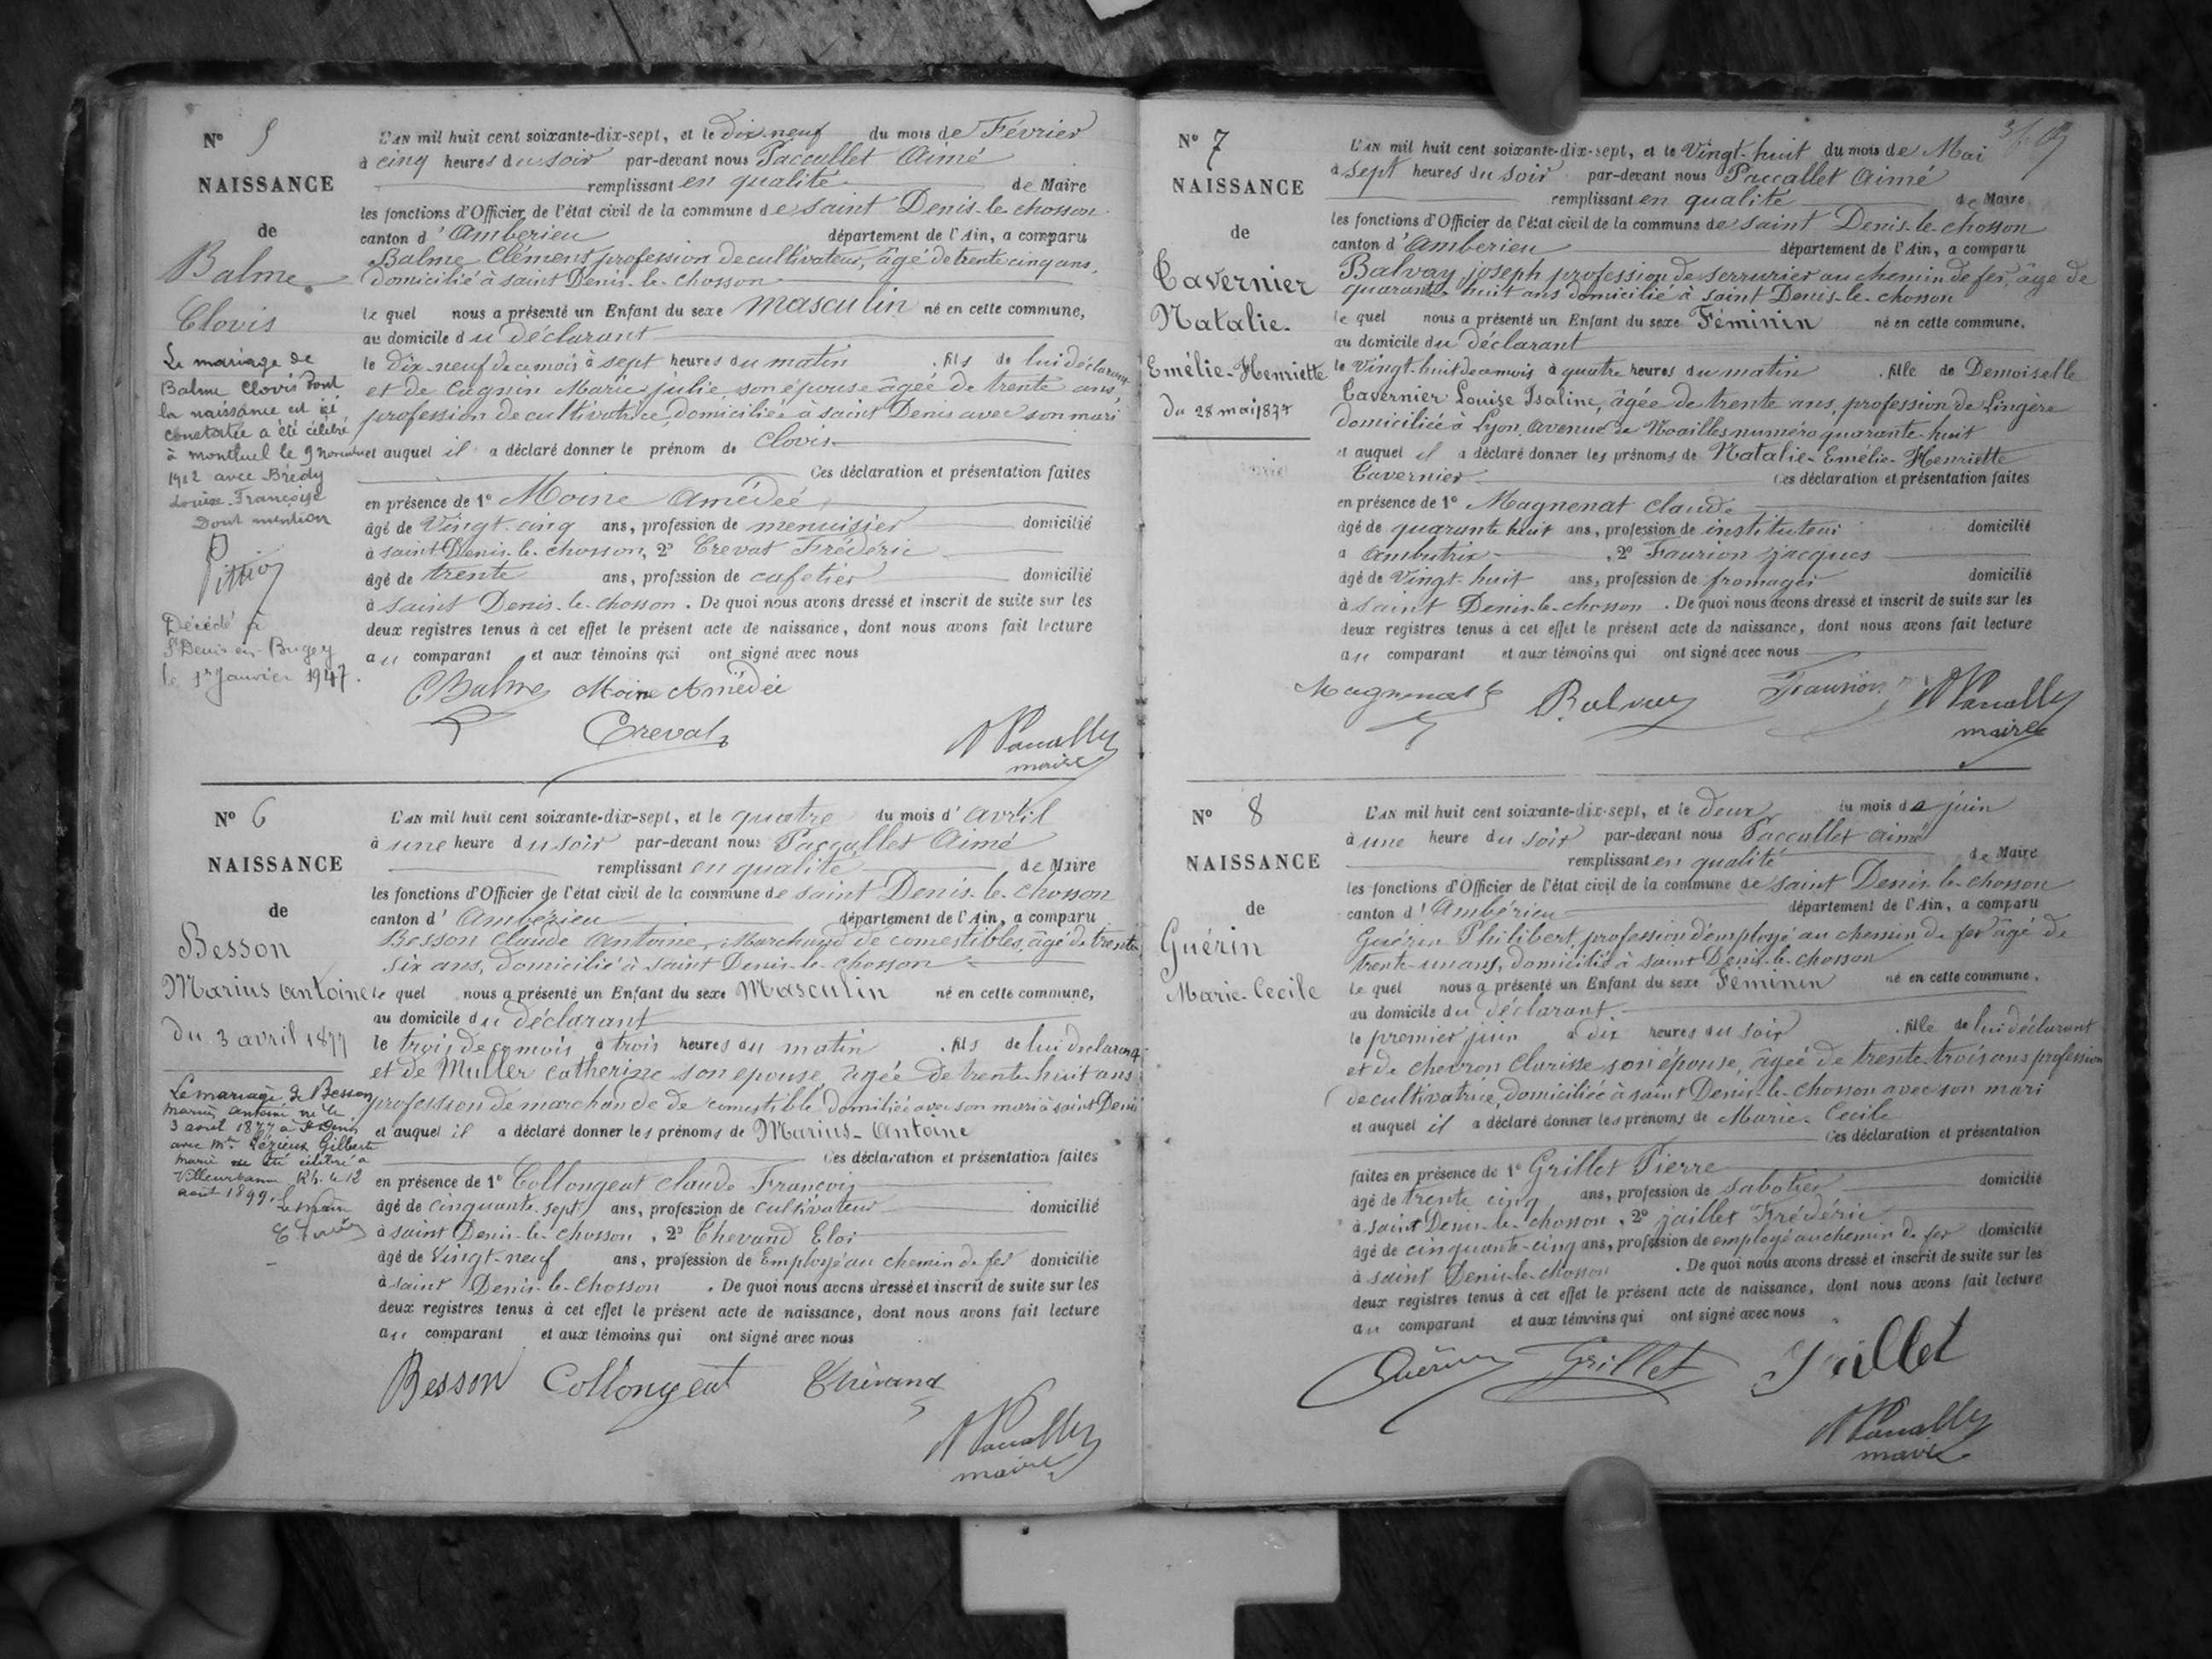 N° 5
NAISSANCE
de
Balme
Clovis
Le mariage de
Balme Clovis dont
la naissance est ici
constatée a été célébré
à Montluel le 9 novembre
1912 avec Brédy
Louise Françoise
Dont mention
Décédé à
St Denis-en-Bugey
le 1er Janvier 1947.
L'AN mil huit cent soixante-dix-sept, et le dix-neuf du mois de Février
à cinq heures du soir par-devant nous Paccallet Aimé
remplissant en qualité de Maire
les fonctions d'Officier de l'état civil de la commune de saint Denis-le-chosson
canton d'Ambérieu département de l'Ain, a comparu
Balme Clément, profession de cultivateur, âgé de trente cinq ans,
domicilié à saint Denis-le-chosson
le quel nous a présenté un Enfant du sexe masculin né en cette commune,
au domicile du déclarant
le Dix-neuf de ce mois à sept heures du matin . fils de lui déclarant
et de Cagnin Marie julie, son épouse âgée de trente ans,
profession de cultivatrice, domiciliée à saint Denis avec son mari
et auquel il a déclaré donner le prénom de Clovis
Ces déclaration et présentation faites
en présence de 1° Moine Amédée
âgé de Vingt-cinq ans, profession de menuisier domicilié
à saint Denis-le-chosson, 2° Crevat Frédéric
âgé de trente ans, profession de cafetier domicilié
à saint Denis-le-chosson . De quoi nous avons dressé et inscrit de suite sur les
deux registres tenus à cet effet le présent acte de naissance, dont nous avons fait lecture
au comparant et aux témoins qui ont signé avec nous
C Balme Moine Amédée
Crevat
A Paccallet
maire
N° 6
NAISSANCE
de
Besson
Marius Antoine
du 3 avril 1877
Le mariage de Besson
Marius Antoine né le
3 avril 1877 à St Denis
avec Mlle Gilberte
Marie a été célébré à
Villeurbanne Rh. le 12
août 1899.
Le Maire
L'AN mil huit cent soixante-dix-sept, et le quatre du mois d'avril
à une heure du soir par-devant nous Paccallet Aimé
remplissant en qualité de Maire
les fonctions d'Officier de l'état civil de la commune de saint Denis-le-chosson
canton d'Ambérieu département de l'Ain, a comparu
Besson Claude Antoine, Marchand de comestibles, âgé de trente
six ans, domicilié à saint Denis-le-chosson
le quel nous a présenté un Enfant du sexe Masculin né en cette commune,
au domicile du déclarant
le trois de ce mois à trois heures du matin . fils de lui déclarant
et de Muller catherine son épouse, âgée de trente-huit ans
profession de marchande de comestible domiliée avec son mari à saint Denis
et auquel il a déclaré donner les prénoms de Marius-Antoine
Ces déclaration et présentation faites
en présence de 1° Collongeat Claude François
âgé de cinquante-sept ans, profession de cultivateur domicilié
à saint Denis-le-chosson , 2° Chevand Eloi
âgé de Vingt-neuf ans, profession de Employé au chemin de fer domicilié
à saint Denis-le-chosson . De quoi nous avons dressé et inscrit de suite sur les
deux registres tenus à cet effet le présent acte de naissance, dont nous avons fait lecture
au comparant et aux témoins qui ont signé avec nous
Besson Collongeat Chevand
A Paccallet
maire
N° 7
NAISSANCE
de
Tavernier
Natalie-
Emélie-Henriette
du 28 mai 1877
L'AN mil huit cent soixante-dix-sept, et le Vingt-huit du mois de Mai
à sept heures du soir par-devant nous Paccallet Aimé
remplissant en qualité de Maire
les fonctions d'Officier de l'état civil de la commune de saint Denis-le-chosson
canton d'Ambérieu département de l'Ain, a comparu
Balvay joseph profession de serrurier au chemin de fer, âgé de
quarante-huit ans domicilié à saint Denis-le-chosson
le quel nous a présenté un Enfant du sexe Féminin né en cette commune.
au domicile du déclarant
le Vingt-huit de ce mois à quatre heures du matin . fille de Demoiselle
Tavernier Louise Isaline, âgée de trente ans, profession de Lingère
domiciliée à Lyon, avenue de Noailles numéro quarante-huit
et auquel il a déclaré donner les prénoms de Natalie-Emélie-Henriette
Tavernier Ces déclaration et présentation faites
en présence de 1° Magnenat claude
âgé de quarante huit ans, profession de instituteur domicilié
à Ambutrix , 2° Faurion jacques
âgé de Vingt-huit ans, profession de fromager domicilié
à saint Denis-le-chosson . De quoi nous avons dressé et inscrit de suite sur les
deux registres tenus à cet effet le présent acte de naissance, dont nous avons fait lecture
au comparant et aux témoins qui ont signé avec nous
Magnenat Balvay Faurion A Paccallet
maire
N° 8
NAISSANCE
de
Guérin
Marie-Cecile
L'AN mil huit cent soixante-dix-sept, et le deux du mois de juin
à une heure du soir par-devant nous Paccallet aimé
remplissant en qualité de Maire
les fonctions d'Officier de l'état civil de la commune de saint Denis-le-chosson
canton d'Ambérieu département de l'Ain, a comparu
Guérin Philibert, profession d'employé au chemin de fer âgé de
trente-un ans, domicilié à saint Denis-le-chosson
le quel nous a présenté un Enfant du sexe Féminin né en cette commune.
au domicile du déclarant
le premier juin à dix heures du soir . fille de lui déclarant
et de chevron Clarisse son épouse, âgée de trente-trois ans profession
de cultivatrice, domiciliée à saint Denis-le-chosson avec son mari
et auquel il a déclaré donner les prénoms de Marie-Cecile
Ces déclaration et présentation
faites en présence de 1° Grillet Pierre
âgé de trente cinq ans, profession de sabotier domicilié
à saint Denis-le-chosson , 2° jaillet Frédéric
âgé de cinquante-cinq ans, profession de employé au chemin de fer domicilié
à saint Denis-le-chosson . De quoi nous avons dressé et inscrit de suite sur les
deux registres tenus à cet effet le présent acte de naissance, dont nous avons fait lecture
au comparant et aux témoins qui ont signé avec nous
Guérin Grillet Jaillet
A Paccallet
maire